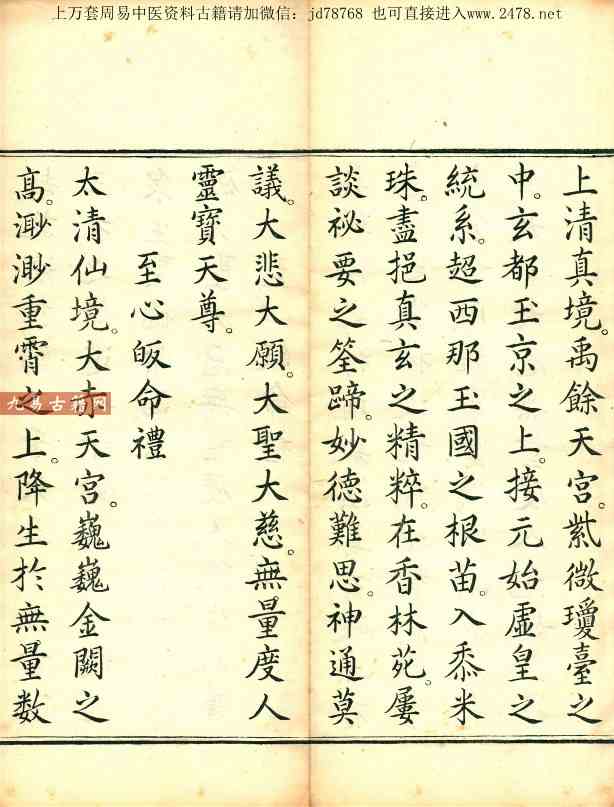 上万套周易中医资料古籍请加微信：jd78768 也可直接进入www.2478.net
上清真境。禹餘天宮。紫微瓊臺之
中。玄都玉京之上。接元始虛皇之
統系。超西那玉國之根苗。入黍米
珠。盡挹真玄之精粹。在香林苑。屢
談祕要之筌蹄。妙德難思。神通莫
議。大悲大願。大聖大慈。無量度人
靈寶天尊。
至心皈命禮
太清仙境。大赤天宮。巍巍金闕之
高。渺渺重霄之上。降生於無量数
九易古籍网